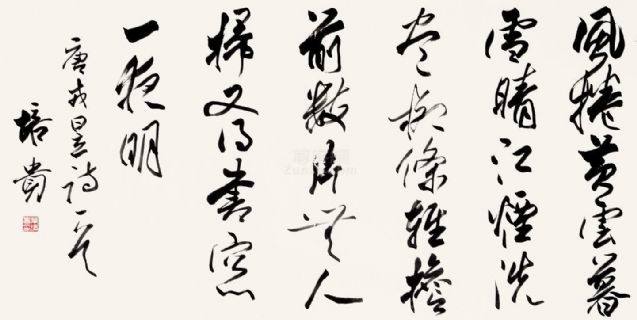 風捲黃雲暮
雪晴江煙洗
盡柳條輕檐
前數片無人
掃又得書窗
一夜明
唐戎昱詩一首
培貴